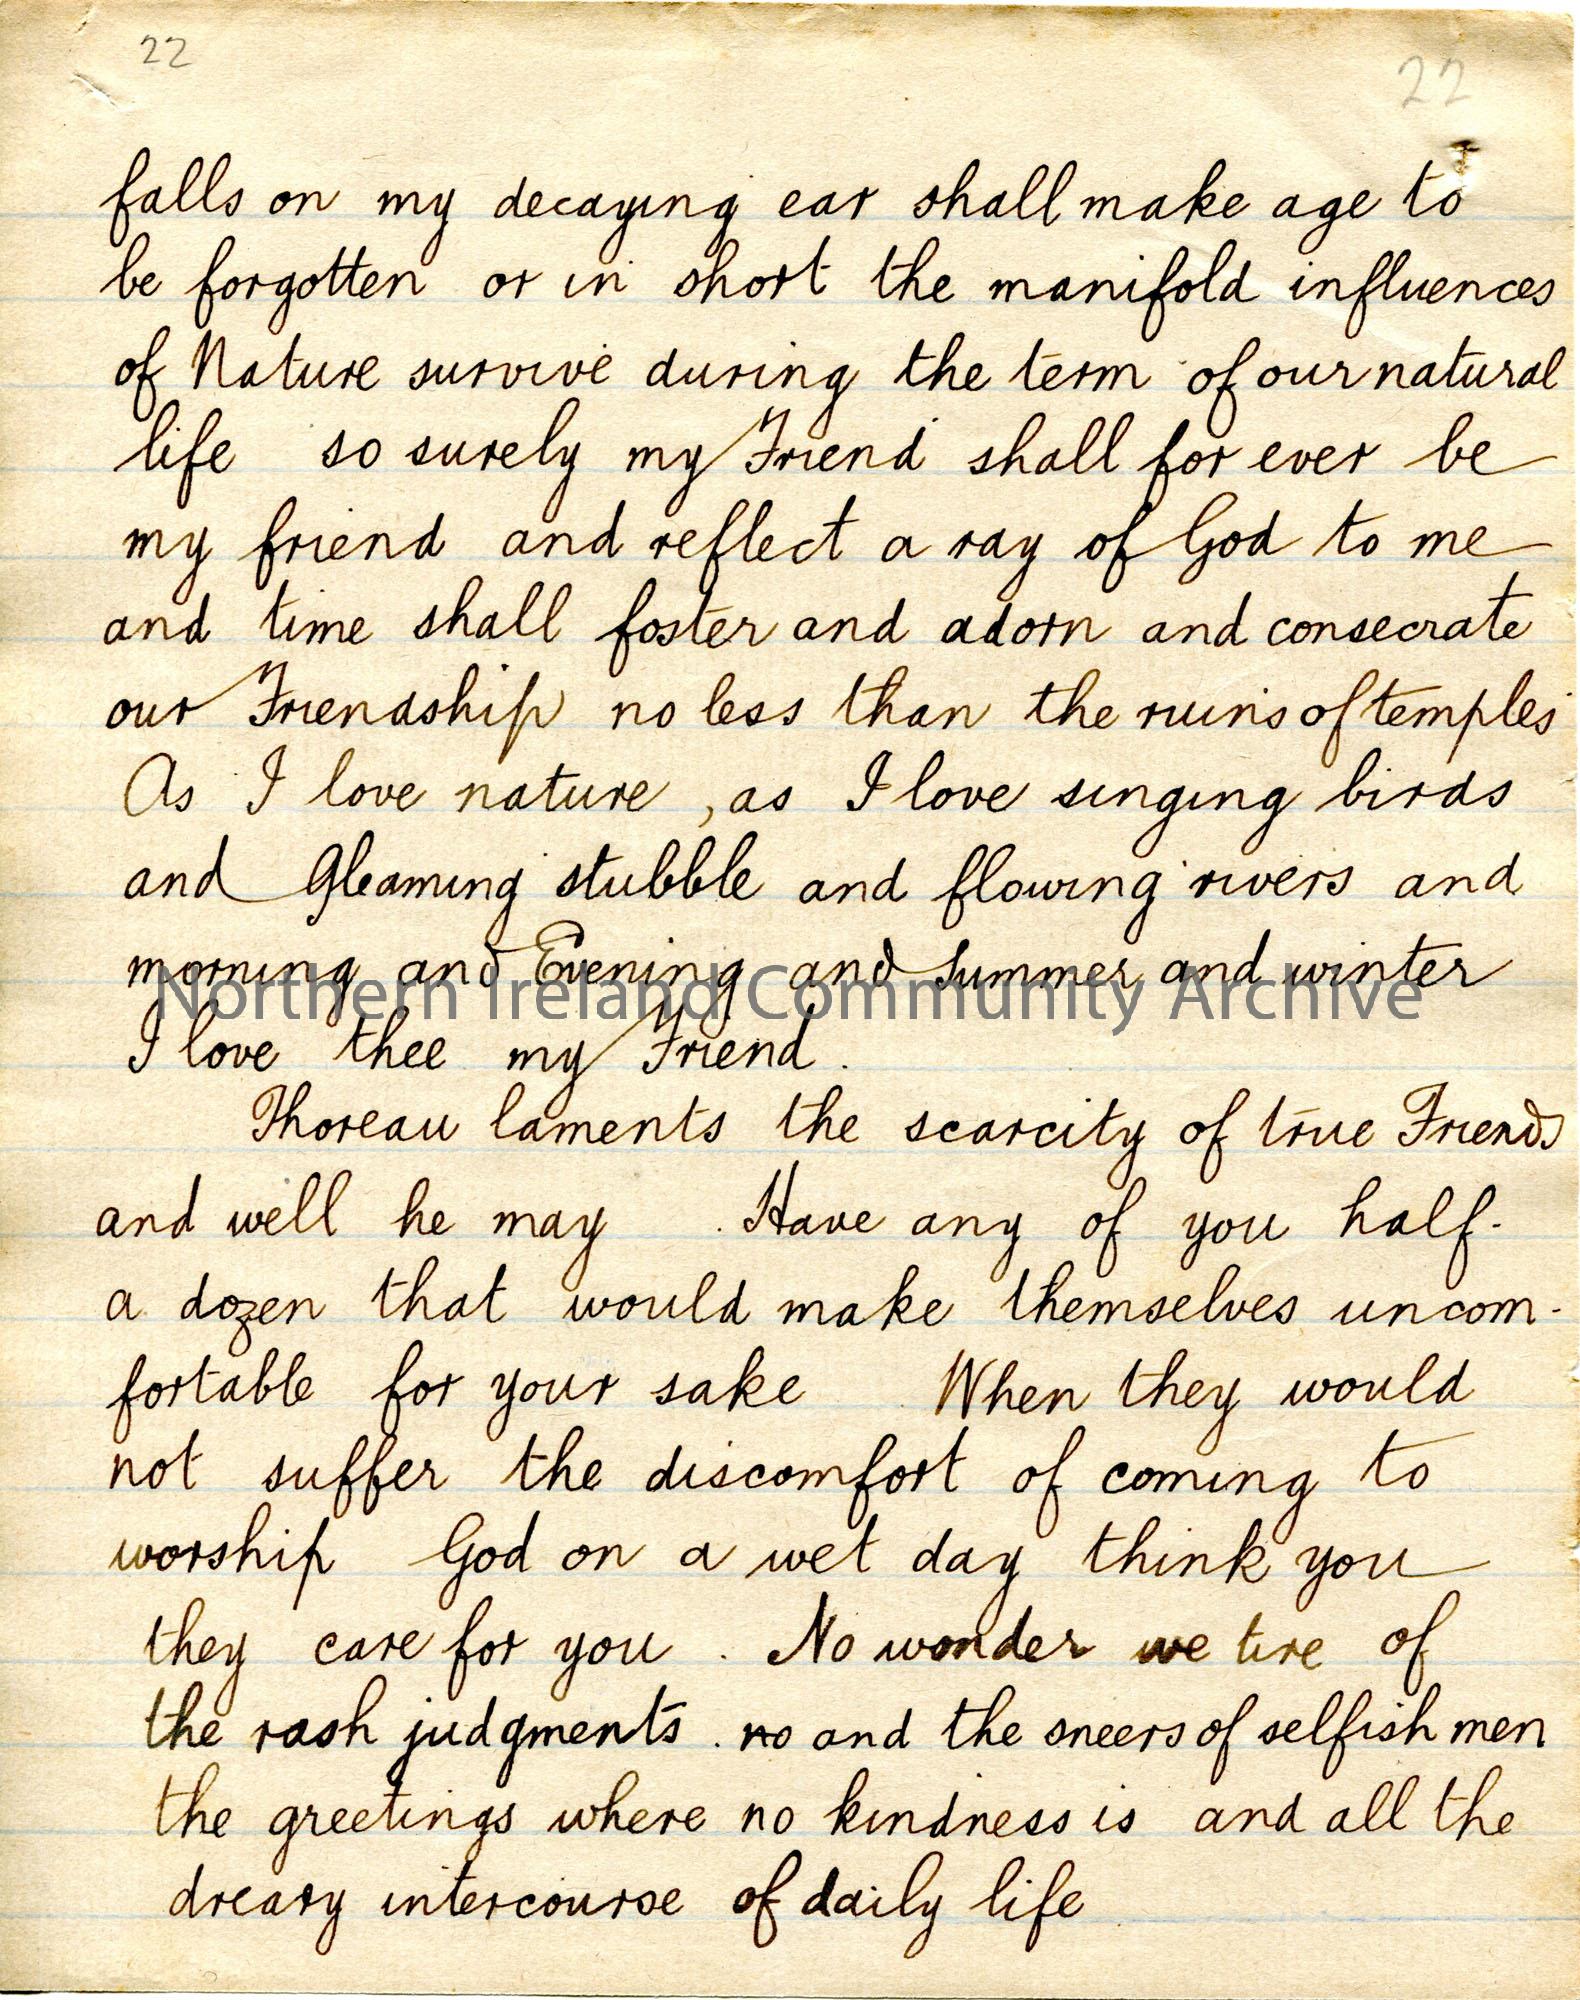 22 22
falls on my decaying ear shall make age to
be forgotten or in short the manifold influences
of Nature survive during the term of our natural
life so surely my Friend shall for ever be
my friend and reflect a ray of God to me
and time shall foster and adorn and consecrate
our Friendship no less than the ruins of temples
As I love nature, as I love singing birds
and Gleaming stubble and flowing rivers and
morning and Evening and Summer and winter
Northern Ireland Community Archive
I love thee my Friend.
Thoreau laments the scarcity of true Friends
and well he may. Have any of you half-
a dozen that would make themselves uncom-
fortable for your sake When they would
not suffer the discomfort of coming to
worship God on a wet day think you
they care for you. No wonder we tire of
the rash judgments. no and the sneers of selfish men
the greetings where no kindness is and all the
dreary intercourse of daily life